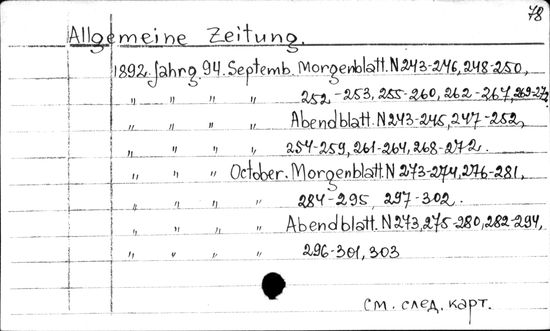 78
Allgemeine Zeitung.
1892. Jahrg. 94. Septemb. Morgenblatt. N 243-246, 248-250,
" " " " 252-253, 255-260, 262-267, 269-272
" " " " Abendblatt. N 243-245, 247-252,
" " " " 254-259, 261-264, 268-272.
" " " October. Morgenblatt. N 273-274, 276-281,
" " " " 284-295, 297-302.
" " " " Abendblatt. N 273, 275-280, 282-294,
" " " " 296-301, 303
см. след. карт.